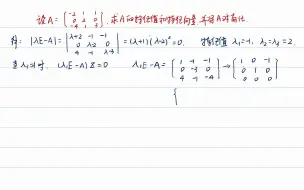 设A = [-2 1 1; 0 2 0; -4 1 3], 求A的特征值和特征向量, 并将A对角化
解: |λE-A| = |λ+2 -1 -1; 0 λ-2 0; 4 -1 λ-3| = (λ+1)(λ-2)² = 0. 特征值 λ₁=-1, λ₂=λ₃=2.
当λ₁=-1时, (λ₁E-A)x=0 λ₁E-A = [1 -1 -1; 0 -3 0; 4 -1 -4] → [1 0 -1; 0 1 0; 0 0 0]